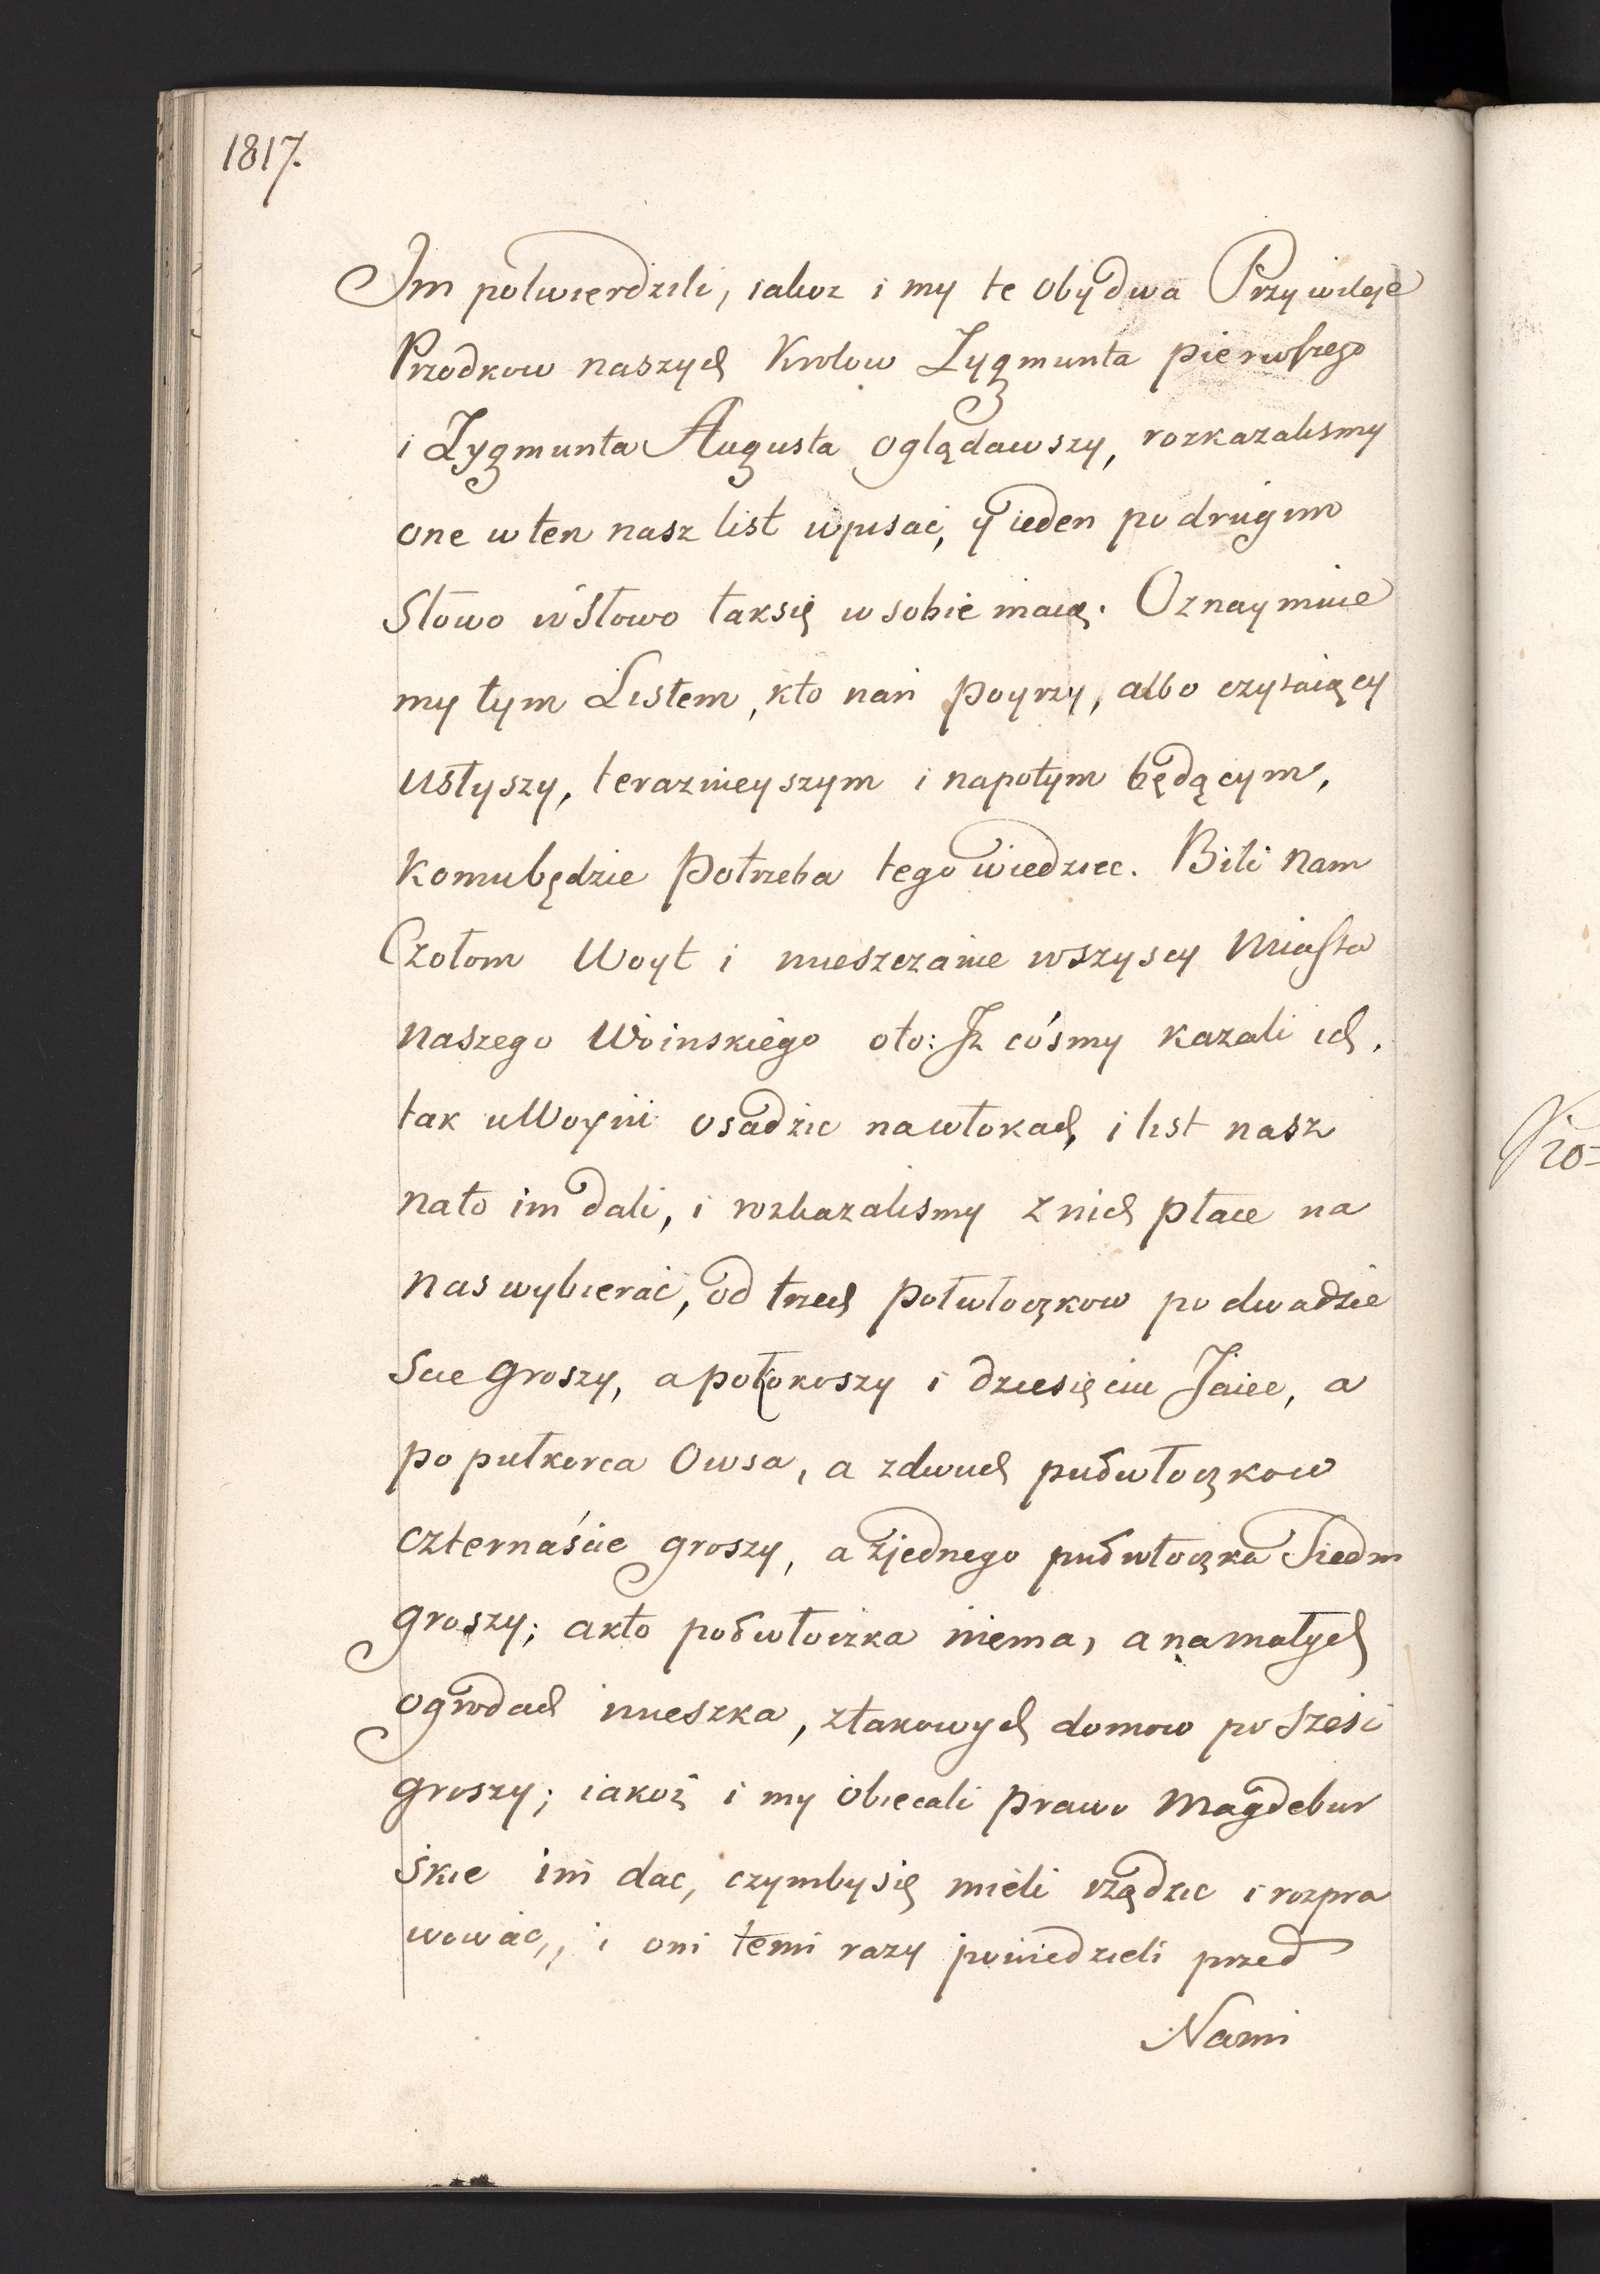 1817.
Im potwierdzili, iakoz i my te obydwa Przywileje
Przodkow naszych Krolow Zygmunta pierwszego
i Zygmunta Augusta oglądawszy, rozkazalismy
one w ten nasz list wpisać, y ieden po drugim
Słowo w Słowo taksię w sobie maią. Oznaymuie
my tym Listem, kto nań poyrzy, albo czytaiący
usłyszy, teraznieyszym i napotym będącym,
komubędzie potrzeba tego wiedziec. Bili nam
Czołom Woyt i mieszczanie wszyscy Miasta
naszego Woinskiego oto: Iż cośmy kazali ich,
tak u Woyni osadzic na włokach, i list nasz
nato im dali, i rozkazalismy z nich płace na
nas wybierać, od trzech połwłoczkow po dwadzie
scie groszy, a połokoszy i dziesięciu Jaiec, a
po pułkorca Owsa, a zdwuch pułwłoczkow
czternaście groszy, a zjednego pułwłoczka Siedm
groszy; akto połwłoczka niema, a na małych
ogrodach mieszka, ztakowych domow po sześć
groszy; iakoż i my obiecali prawo Magdebur
skie im dac, czymbysię mieli rządzic i rozpra
wować,, i oni temi razy powiedzieli przed
Nami
Kro=